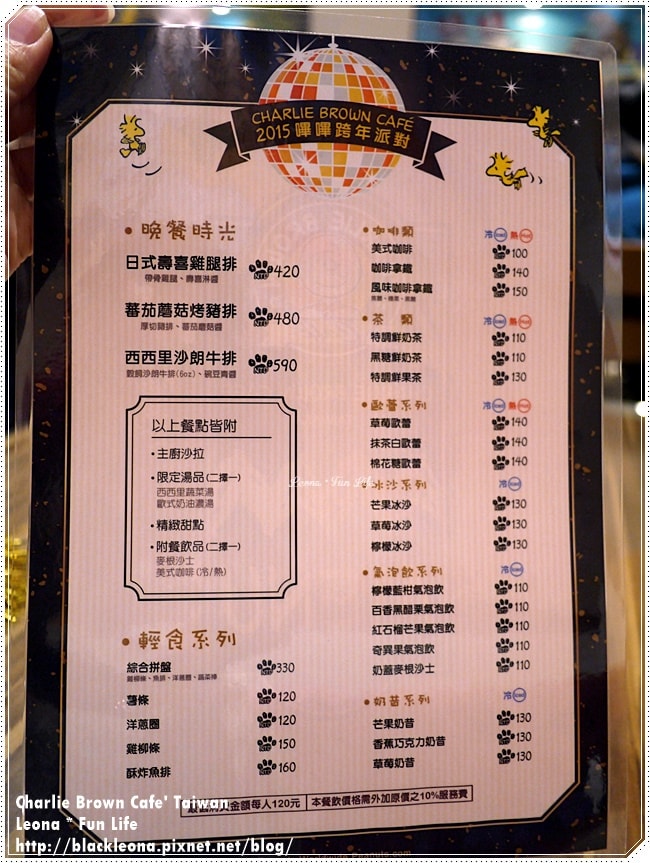 CHARLIE BROWN CAFÉ
2015 嗶嗶跨年派對
• 晚餐時光
日式壽喜雞腿排 NT$ 420
帶骨雞腿、壽喜淋醬
蕃茄蘑菇烤豬排 NT$ 480
厚切豬排、蕃茄蘑菇醬
西西里沙朗牛排 NT$ 590
穀飼沙朗牛排(6oz)、豌豆青醬
以上餐點皆附
•主廚沙拉
•限定湯品(二擇一)
西西里蔬菜湯
歐式奶油濃湯
•精緻甜點
•附餐飲品(二擇一)
麥根沙士
美式咖啡(冷/熱)
• 輕食系列
綜合拼盤 330
雞柳條、魚排、洋蔥圈、蔬菜棒
薯條 120
洋蔥圈 120
雞柳條 150
酥炸魚排 160
•咖啡類 冷 熱
美式咖啡 100
咖啡拿鐵 140
風味咖啡拿鐵 150
•茶 類 冷 熱
特調鮮奶茶 110
黑糖鮮奶茶 110
特調鮮果茶 130
•歐蕾系列 冷 熱
草莓歐蕾 140
抹茶白歐蕾 140
棉花糖歐蕾 140
冰沙系列 冷
芒果冰沙 130
草莓冰沙 130
檸檬冰沙 130
•氣泡飲系列 冷
檸檬藍柑氣泡飲 110
百香黑醋栗氣泡飲 110
紅石榴芒果氣泡飲 110
奇異果氣泡飲 110
奶蓋麥根沙士 110
•奶昔系列 冷
芒果奶昔 130
香蕉巧克力奶昔 130
草莓奶昔 130
金額每人120元 本餐飲價格需外加原價之10%服務費
Leona * Fun Life
Charlie Brown Cafe' Taiwan
Leona * Fun Life
http://blackleona.pixnet.net/blog/